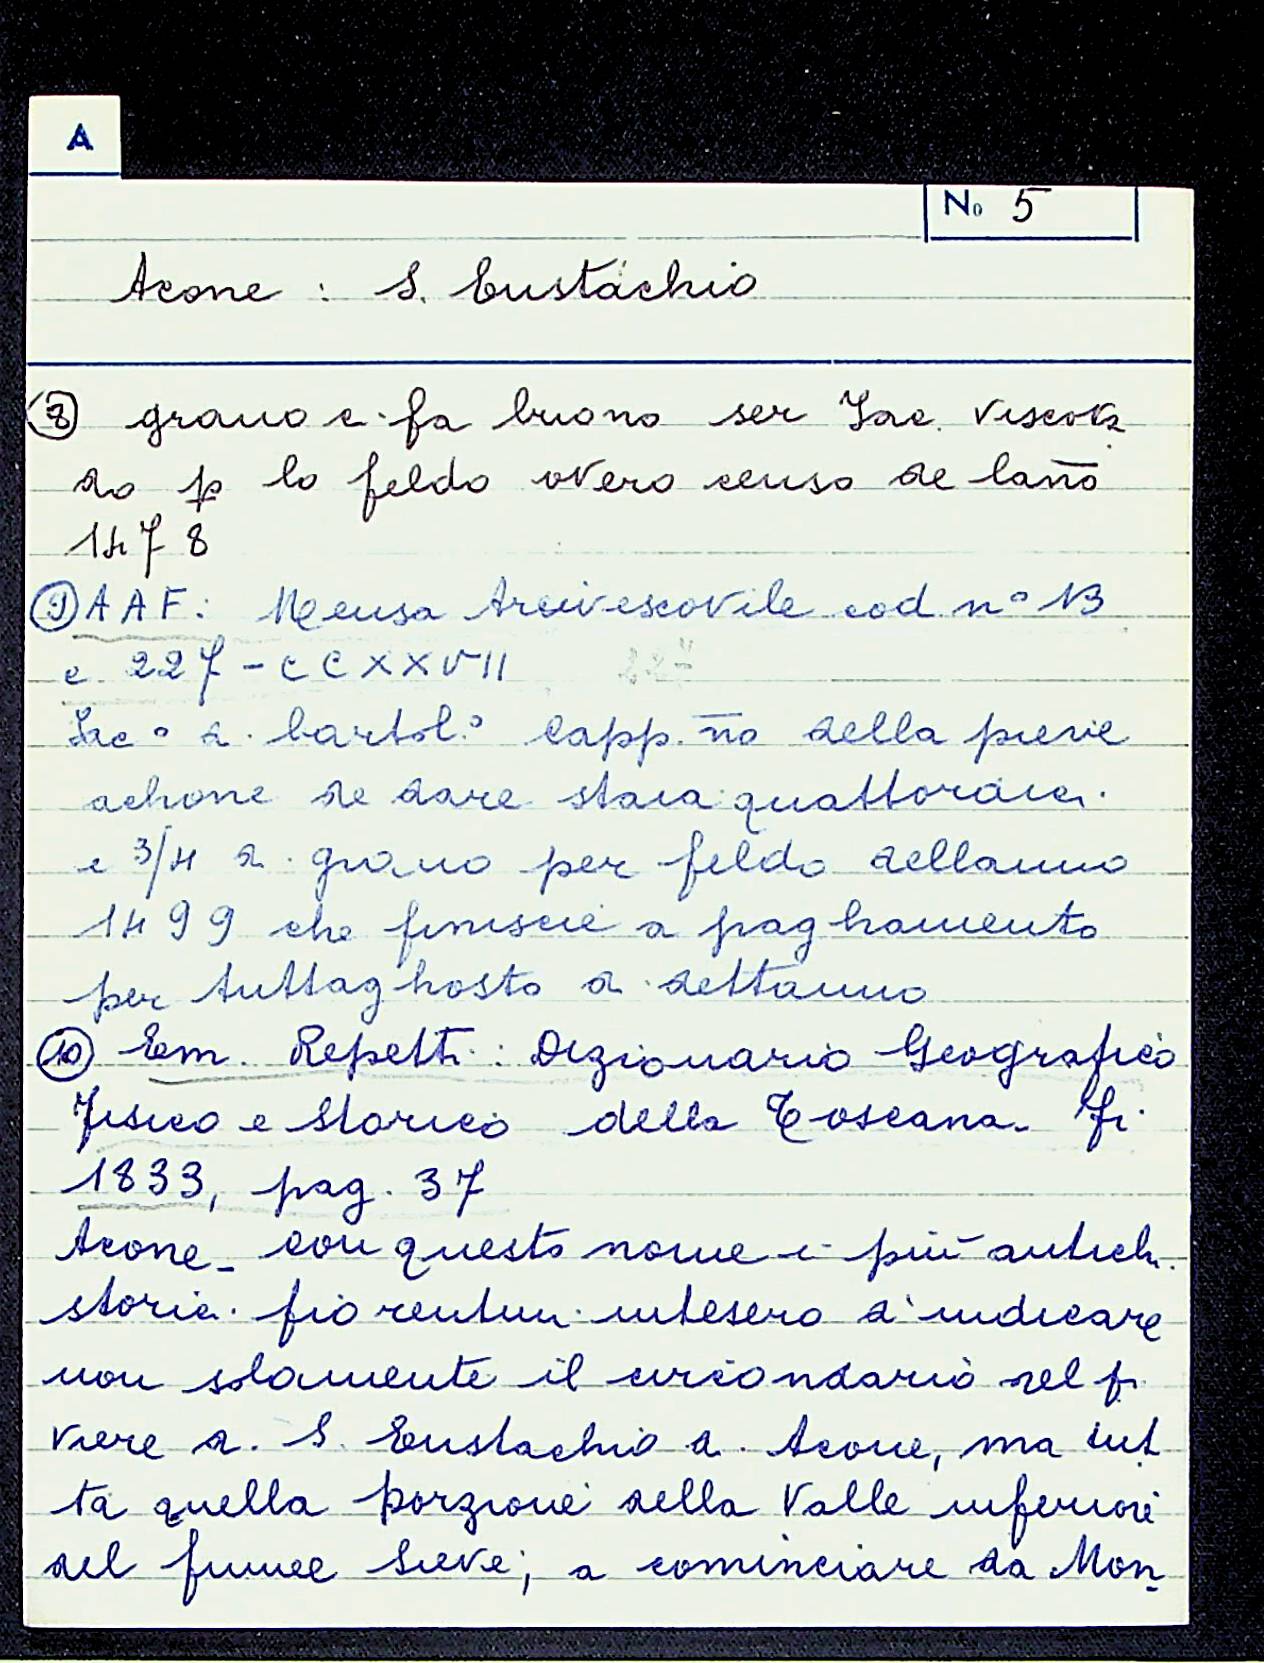 A
No 5
Acone : S. Eustachio
8 grano e fa buono ser Jac. Viscon
do p lo feldo overo censo de lanno
1478
9 AAF: Mensa Arcivescovile cod nº 13
c. 227 - CCXXVII 227
Jacº di bartol.º Capp.no della pieve
achone de dare staia quattordici
e 3/4 di grano per feldo dellanno
1499 che finiscie a paghamento
per tuttaghosto di dettanno
10 Em. Repetti : Dizionario Geografico
Fisico e Storico della Toscana. Fi
1833, pag. 37
Acone - con questo nome i più antichi
storici fiorentini intesero d'indicare
non solamente il circondario del pi
viere di S. Eustachio di Acone, ma tut
ta quella porzione della Valle inferiore
del fiume Sieve, a cominciare da Mon-